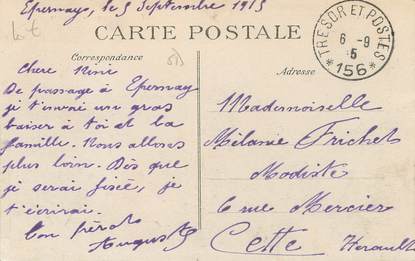 Epernay, le 5 Septembre 1915
CARTE POSTALE
Correspondance
Adresse
TRESOR ET POSTES
6 - 9
5
* 156 *
Chere Mimi
De passage à Epernay
je t'envoi un gros
baiser à toi et la
famille. Nous allons
plus loin. Dès que
je serai fixé, je
t'écrirai.
Ton frère
Auguste
Mademoiselle
Mélanie Frichet
Modiste
6 rue Mercier
Cette Herault